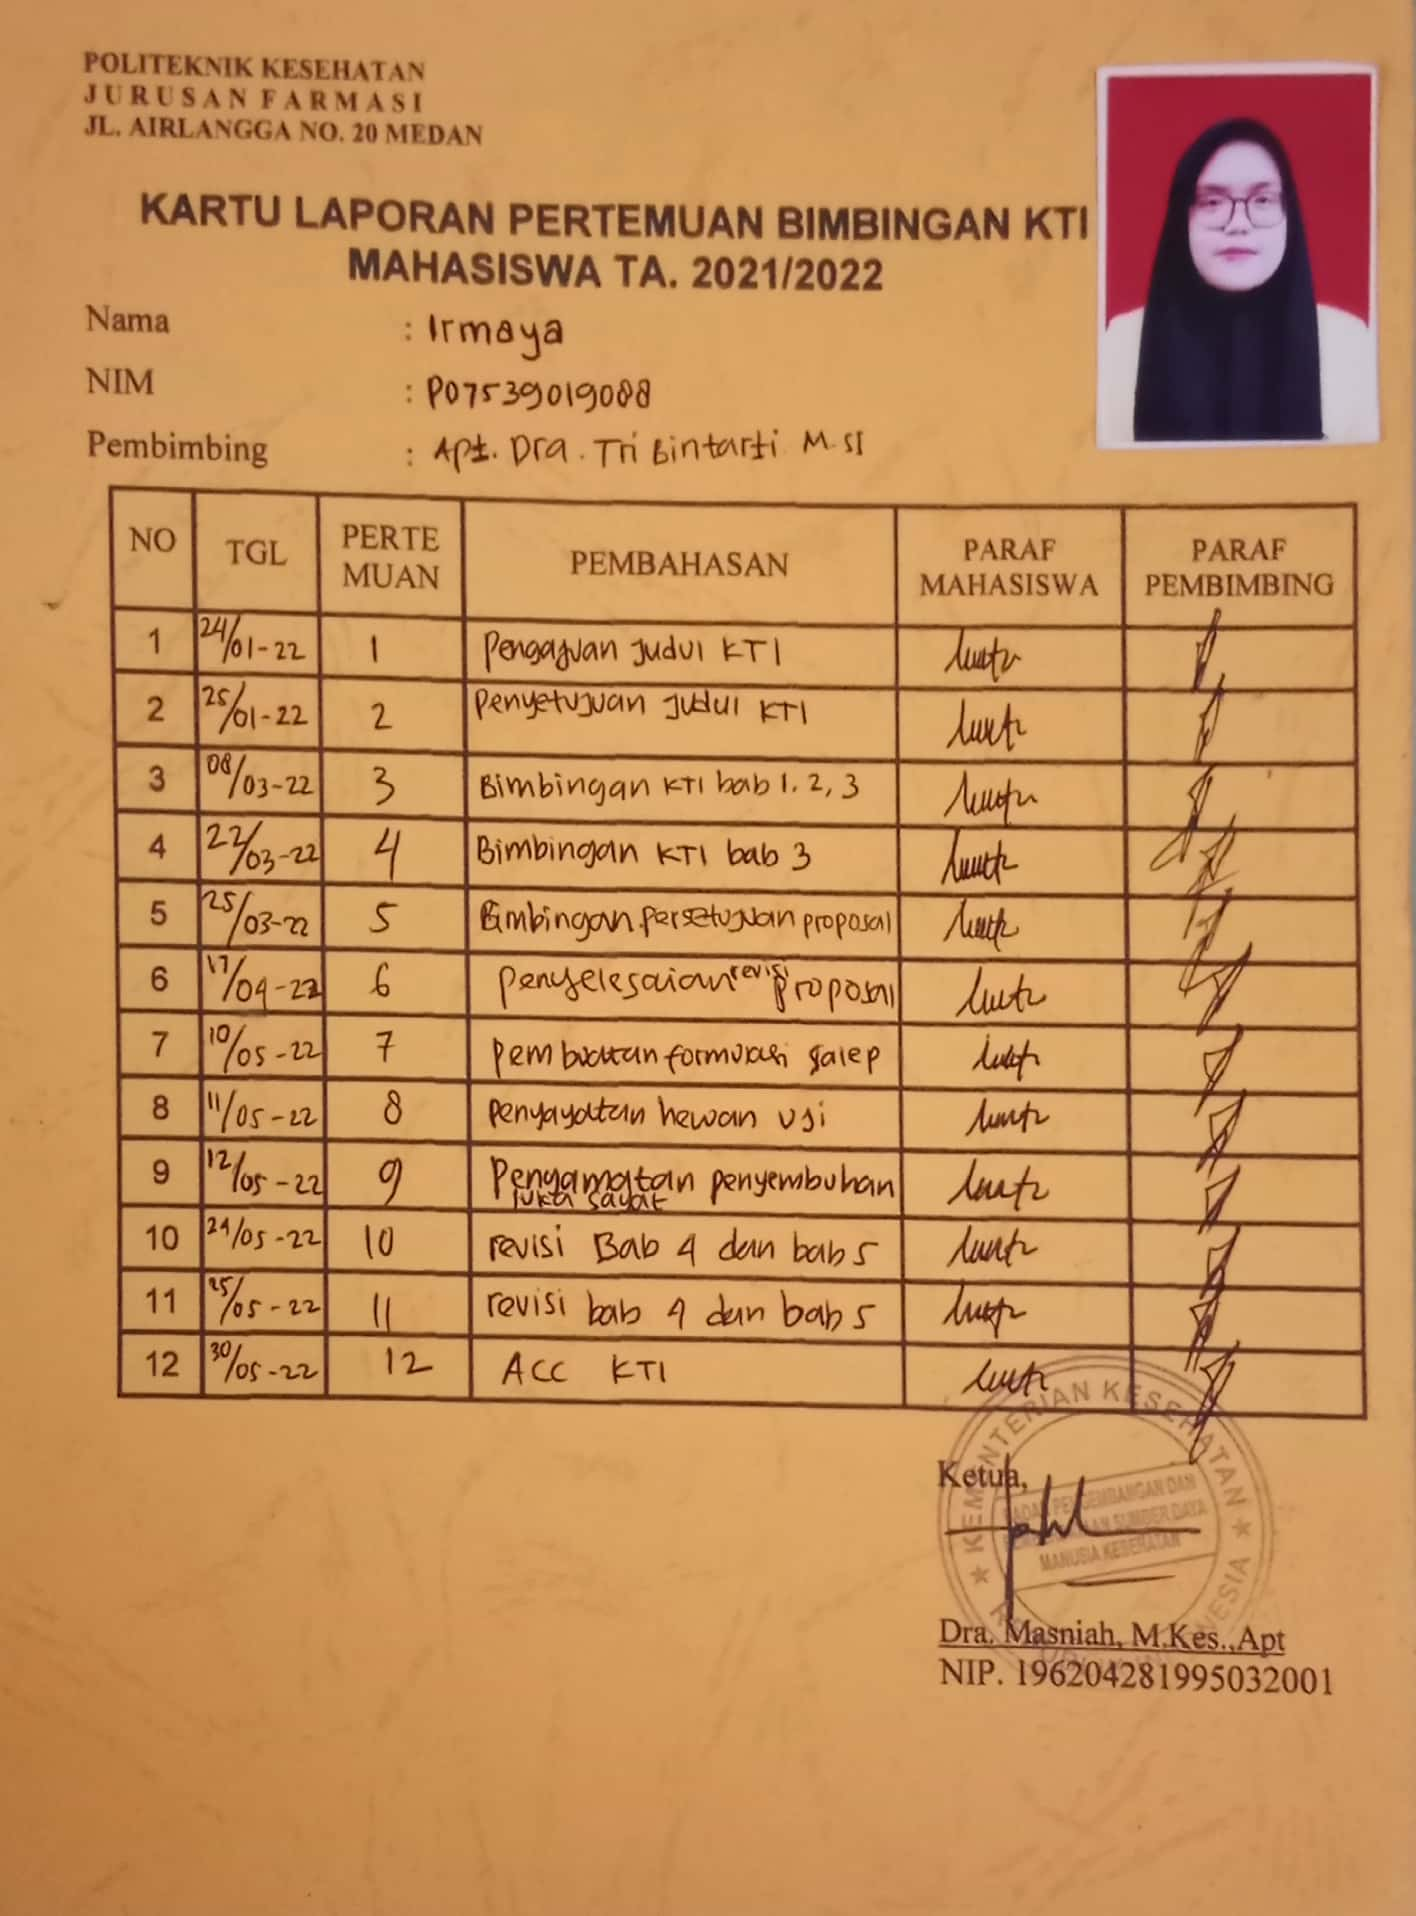 POLITEKNIK KESEHATAN
JURUSAN FARMASI
JL. AIRLANGGA NO. 20 MEDAN
KARTU LAPORAN PERTEMUAN BIMBINGAN KTI
MAHASISWA TA. 2021/2022
Nama : Irmaya
NIM : P07539019088
Pembimbing : Apt. Dra. Tri Bintarti M.SI
NO TGL PERTE MUAN PEMBAHASAN PARAF MAHASISWA PARAF PEMBIMBING
1 24/01-22 1 Pengajuan Judul KTI
2 25/01-22 2 Penyetujuan Judul KTI
3 08/03-22 3 Bimbingan KTI bab 1, 2, 3
4 22/03-22 4 Bimbingan KTI bab 3
5 25/03-22 5 Bimbingan Persetujuan proposal
6 17/04-22 6 Penyelesaian revisi proposal
7 10/05-22 7 Pembuatan formulasi salep
8 11/05-22 8 Penyayatan hewan uji
9 12/05-22 9 Pengamatan penyembuhan
luka sayat
10 24/05-22 10 revisi Bab 4 dan bab 5
11 25/05-22 11 revisi bab 4 dan bab 5
12 30/05-22 12 ACC KTI
KEMENTERIAN KESEHATAN
Ketua,
BADAN PENGEMBANGAN DAN
SUMBER DAYA
MANUSIA KESEHATAN
Dra. Masniah, M.Kes.,Apt
NIP. 196204281995032001